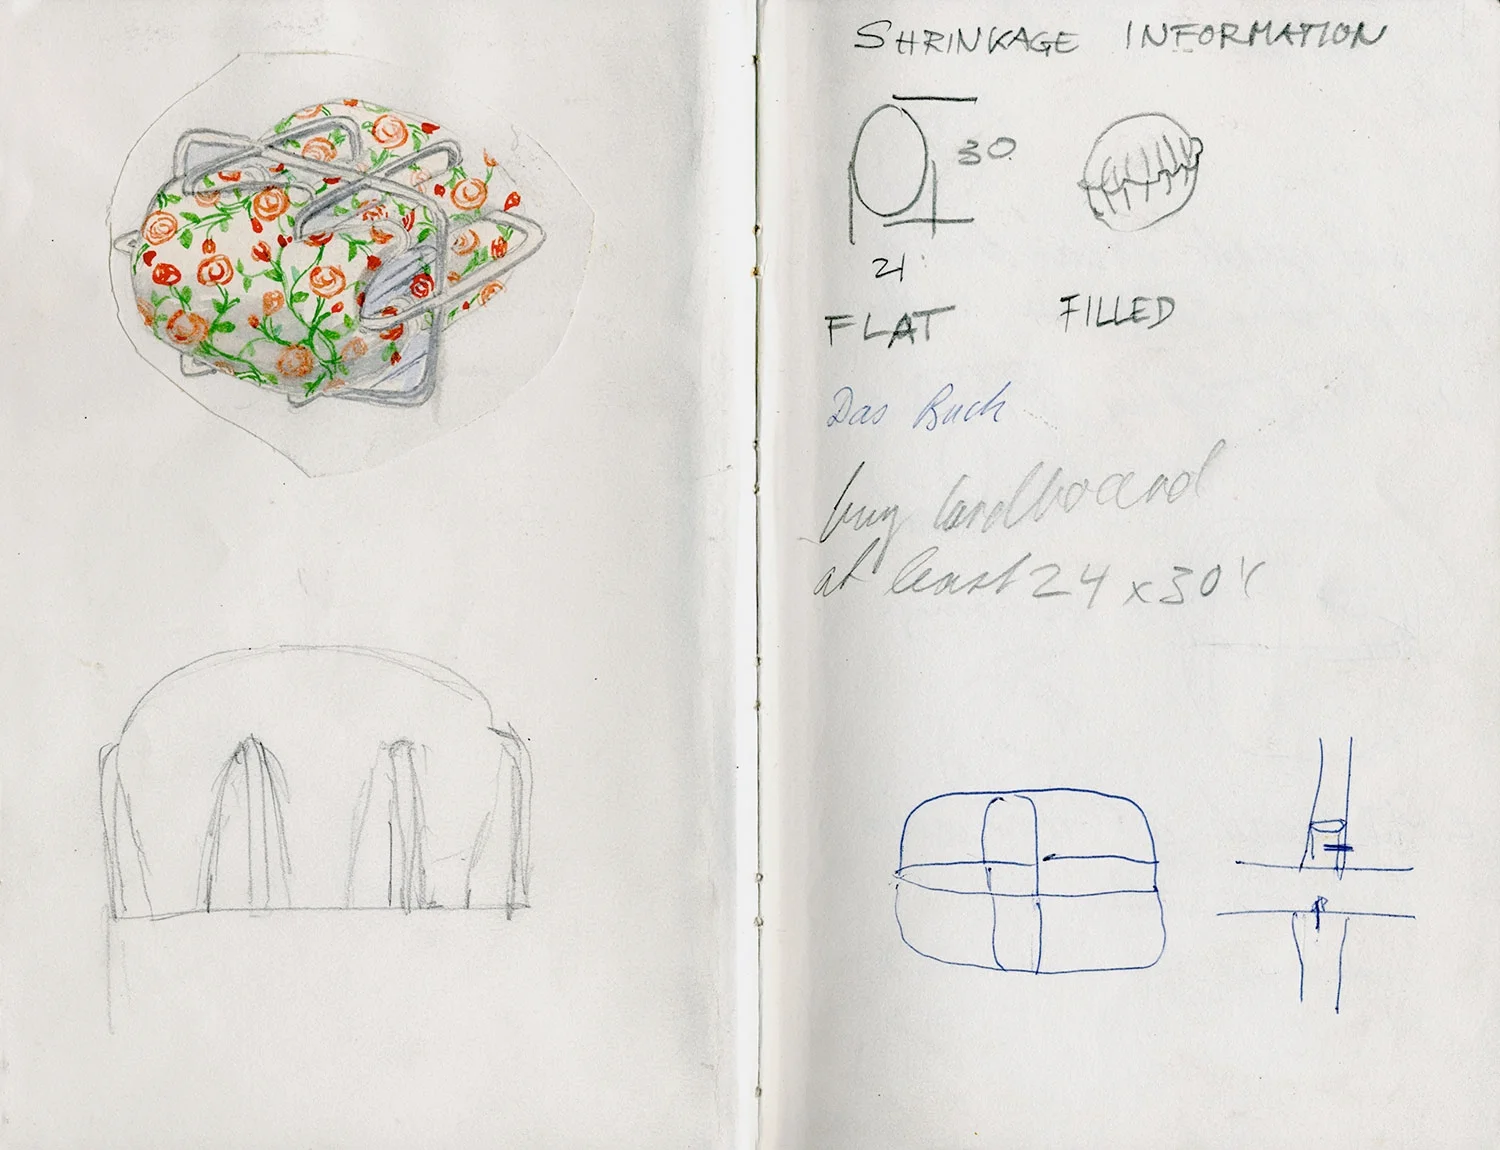 SHRINKAGE INFORMATION
30
21
FLAT
FILLED
Das Buch
buy cardboard
at least 24 x 30"